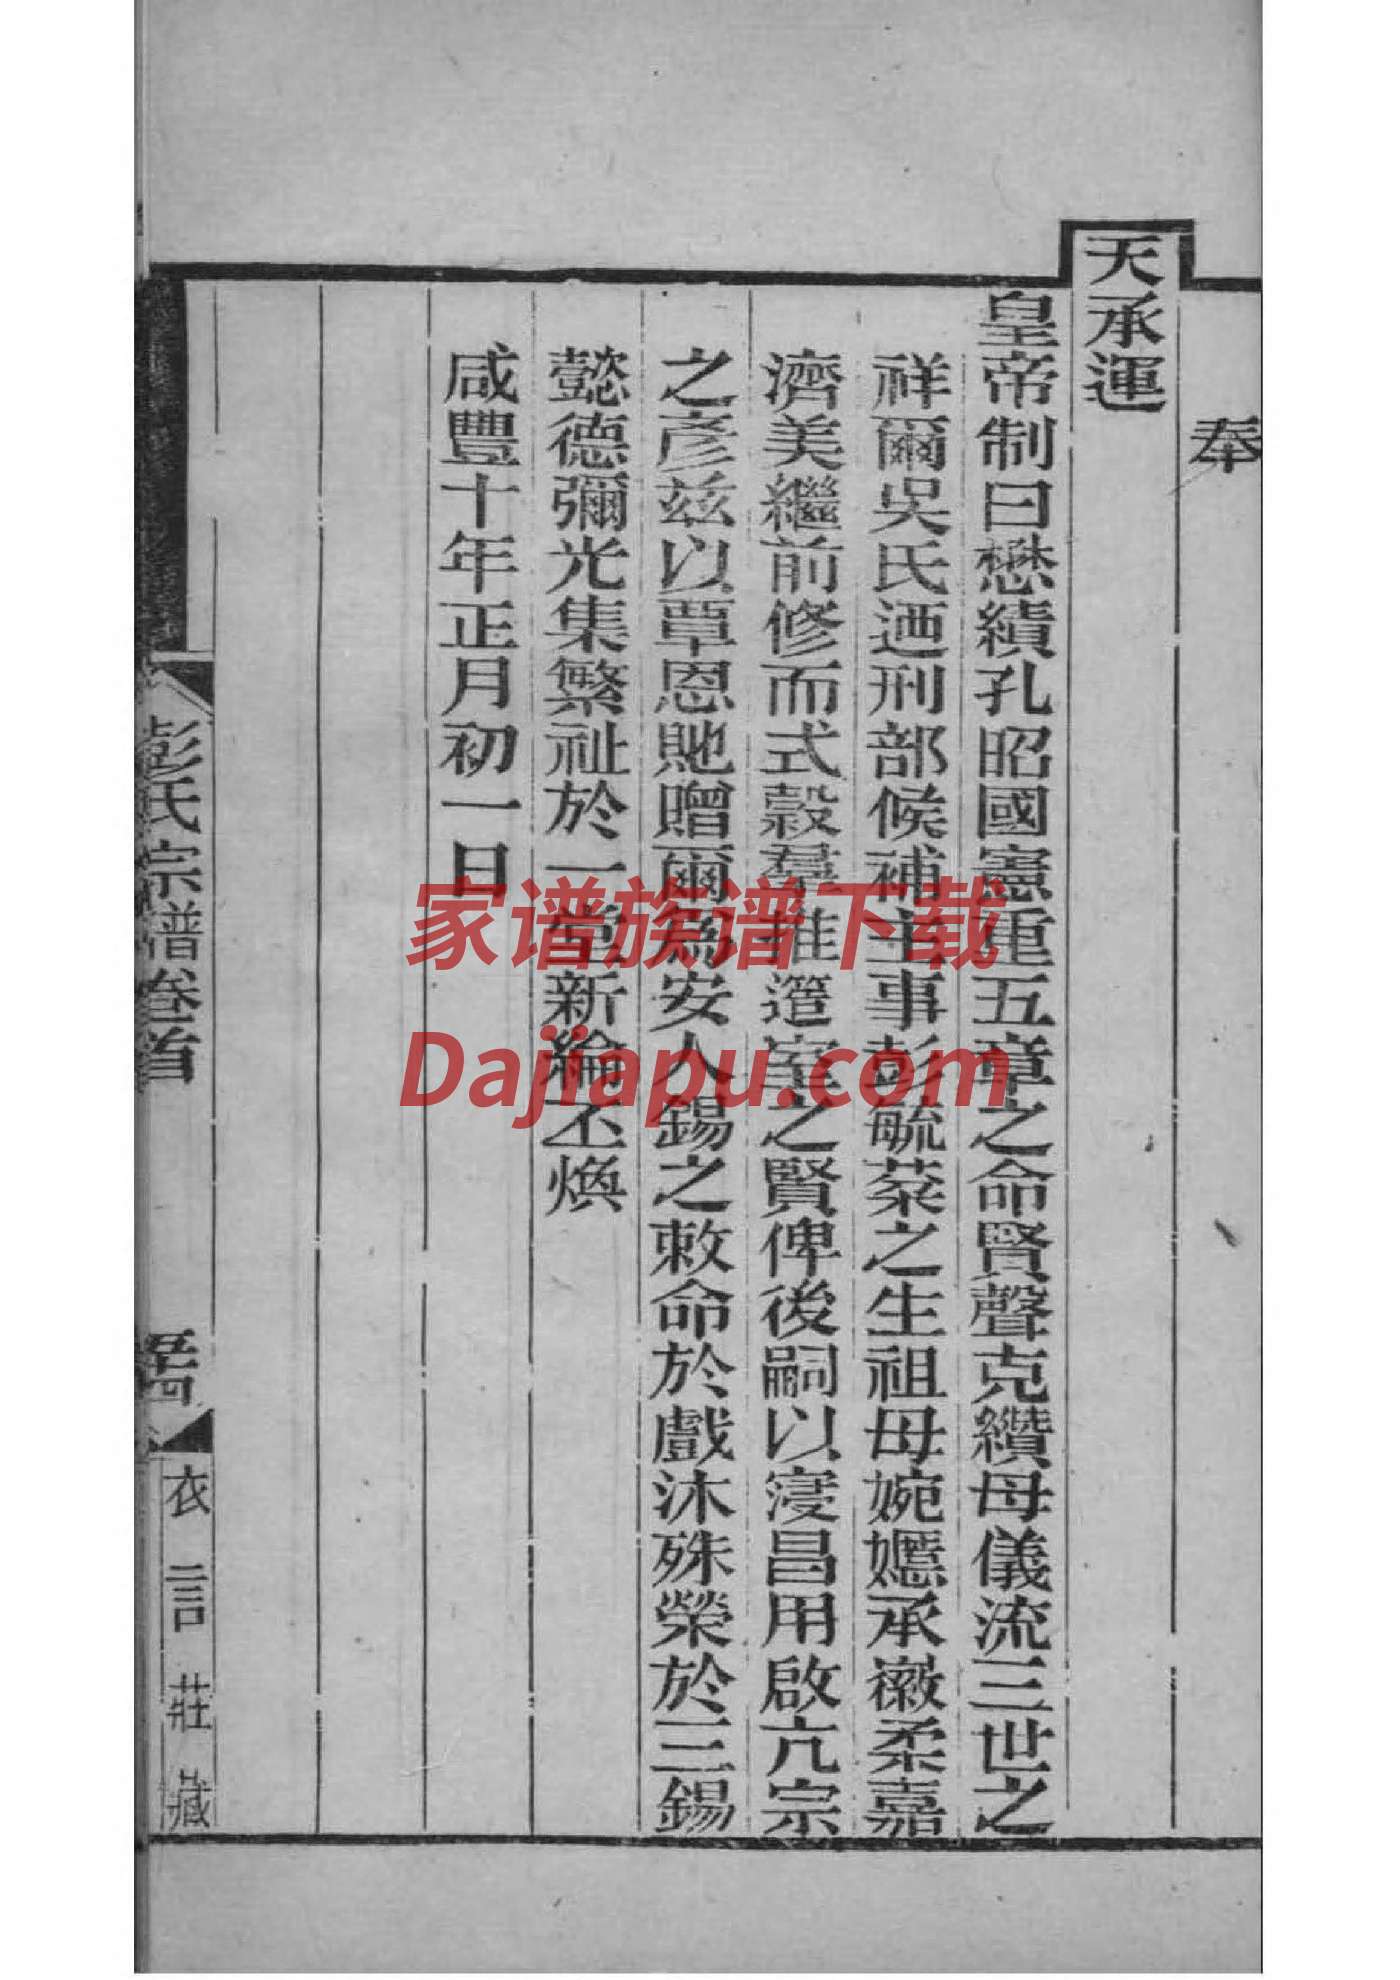 奉
天承運
皇帝制曰懋績孔昭國憲重五章之命賢聲克纘母儀流三世之
祥爾吳氏迺刑部候補主事彭毓棻之生祖母婉嫕承徽柔嘉
濟美繼前修而式穀羣推簉室之賢俾後嗣以寖昌用啟亢宗
之彥茲以覃恩貤贈爾為安人錫之敕命於戲沐殊榮於三錫
懿德彌光集繁祉於一堂新綸丕煥
咸豐十年正月初一日
彭氏宗譜卷首
衣言莊藏
家谱族谱下载
Dajiapu.com